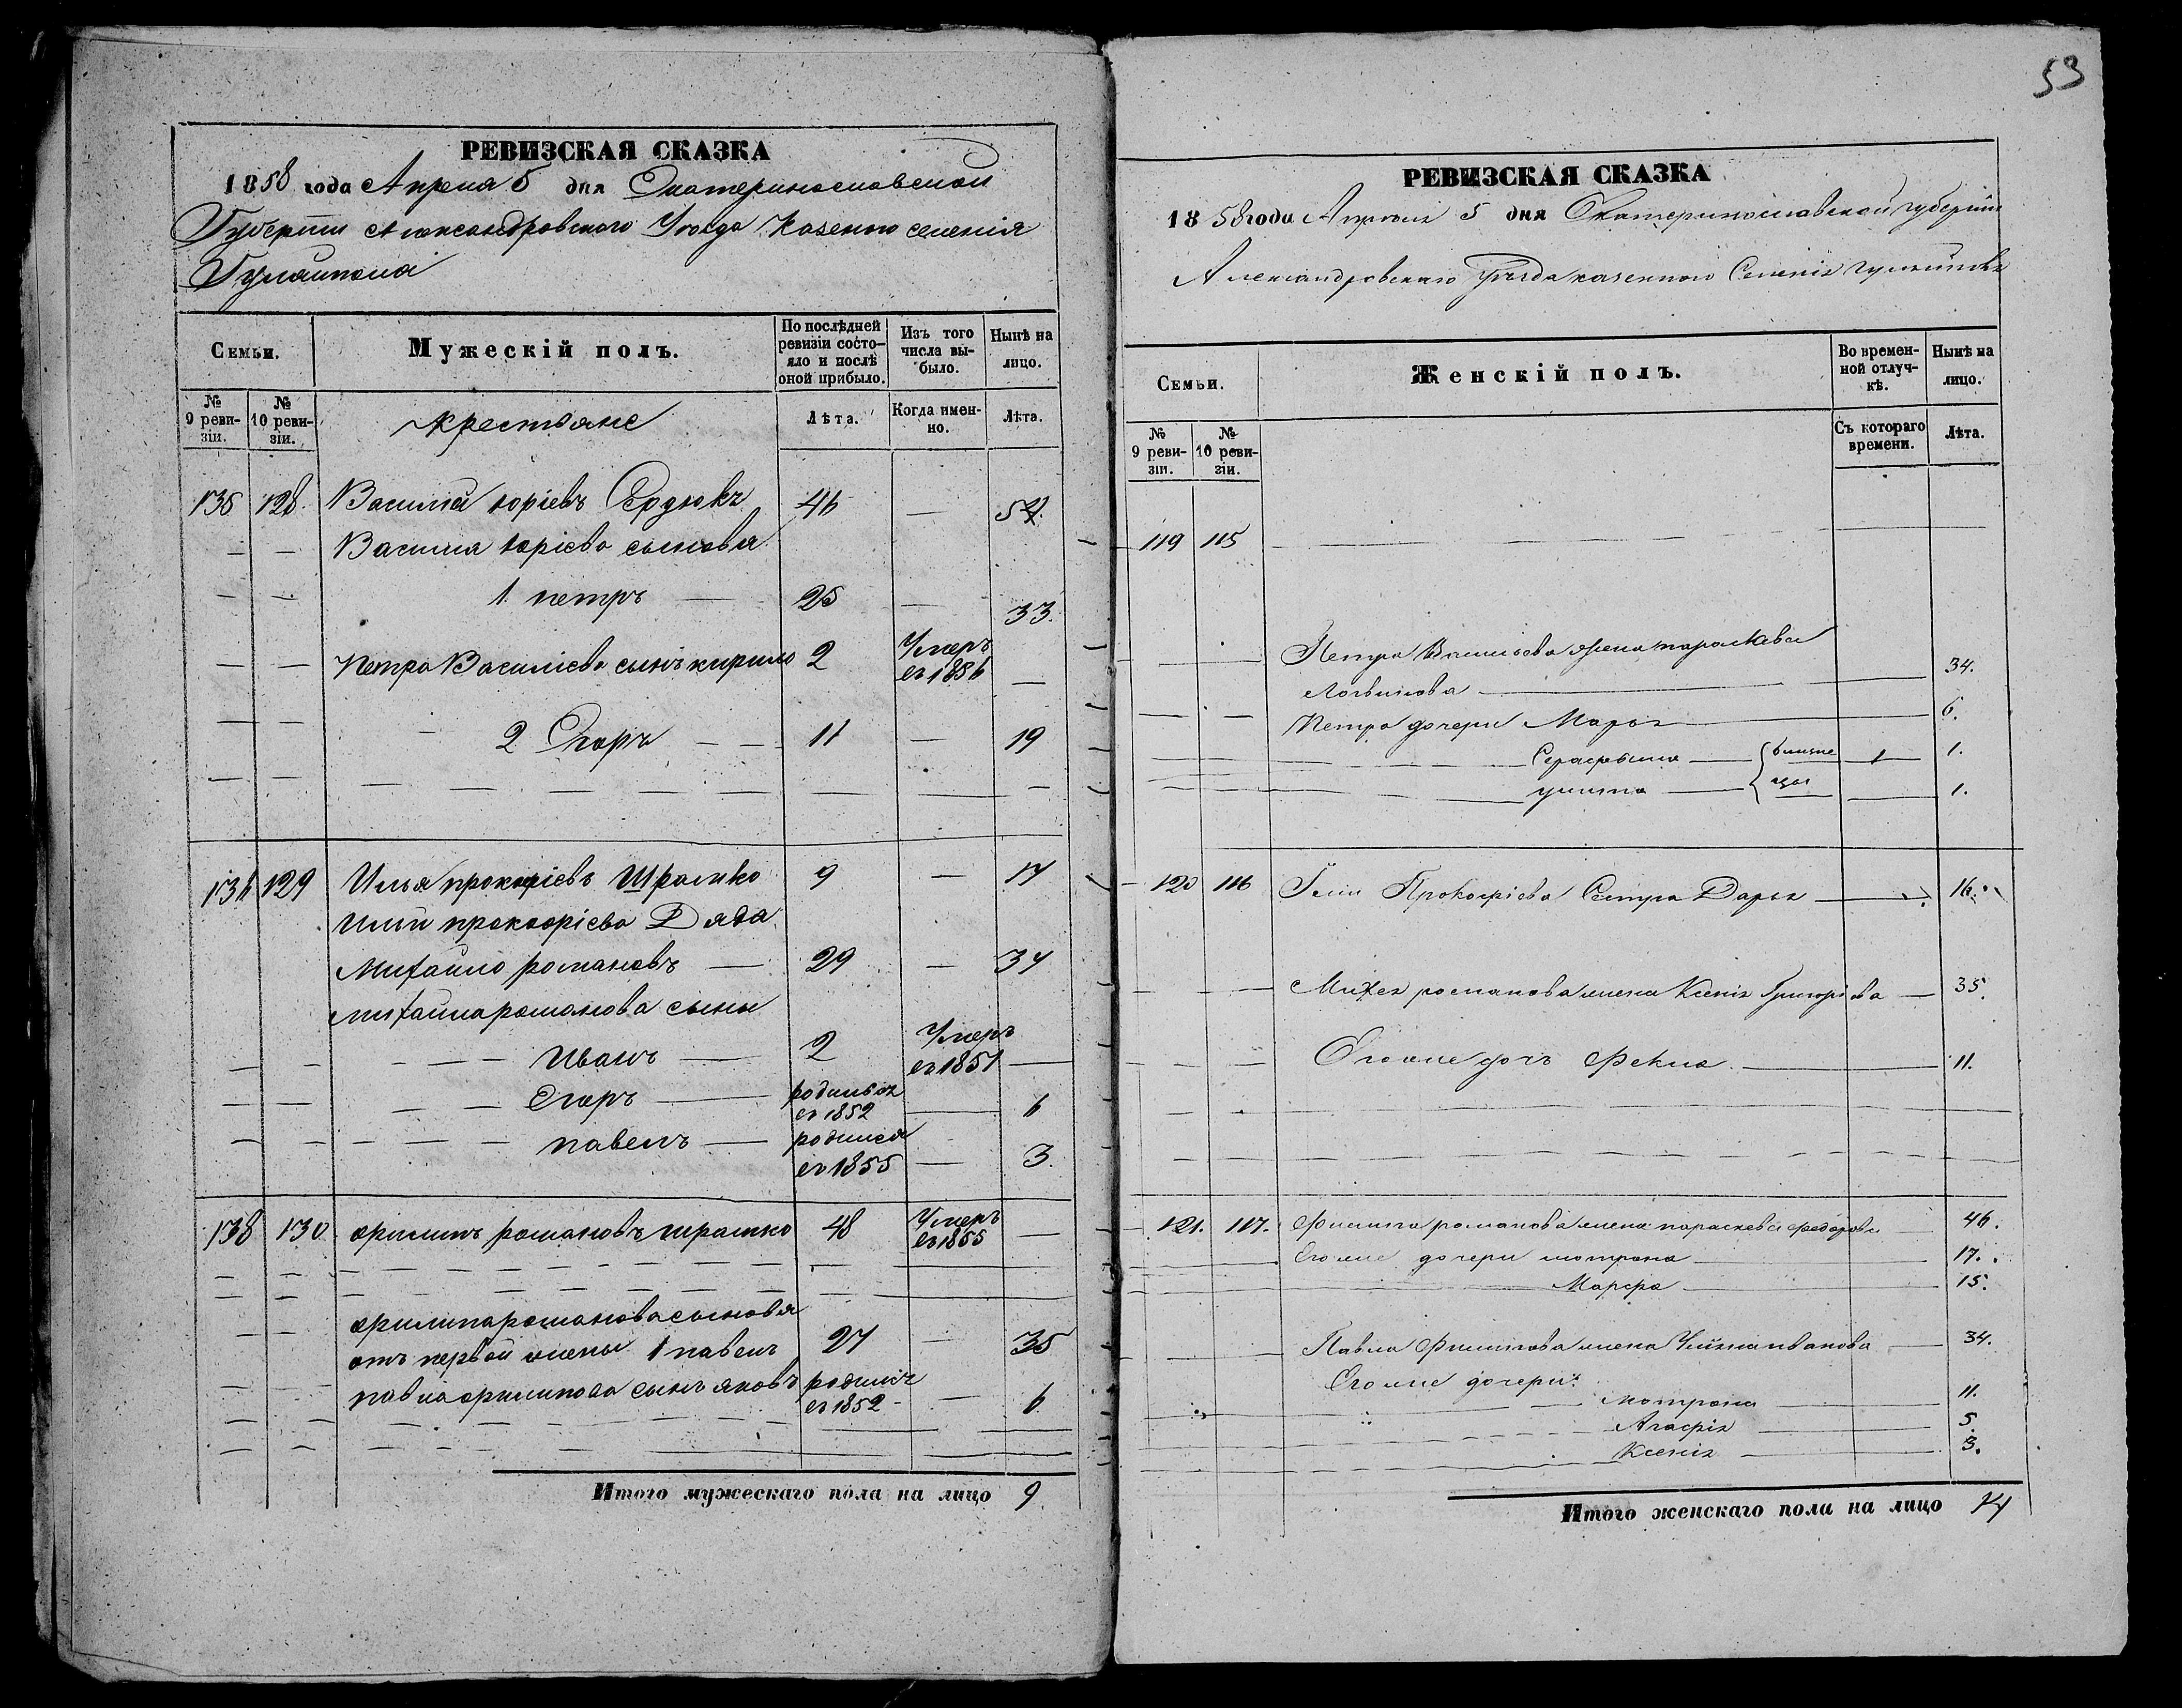 53
РЕВИЗСКАЯ СКАЗКА
1858 года Апреля 5 дня Екатеринославской
Губернии Александровского Уезда Казеного селенія
Гуляйполя
Семьи.
Мужескій полъ.
По послѣдней ревизіи состо-
яло и послѣ оной прибыло.
Изъ того числа вы-
было.
Нынѣ на лицо.
№ 9 реви-
зіи.
№ 10 реви-
зіи.
крестьяне
Лѣта.
Когда имен-
но.
Лѣта.
135 128. Василій юріевъ Сердюкъ 46 — 54.
— — Василія юріева сыновья
— — 1. петръ — 25 — 33.
— — Петра Василіева сынъ кирило 2 Умеръ въ 1856 —
— — 2 Егоръ — — 11 — 19
136 129 Илья прокофіевъ Шрамко 9 — 17
Ильи прокофіева Дядя
Михайло романовъ — 29 — 37
михайла романова сыны
— — Иванъ — 2 Умеръ въ 1851 —
— — Егоръ — родился въ 1852 — 6
— — павелъ — родился въ 1855 — 3.
138 130 филипъ романовъ шрамко 48 Умеръ въ 1855 —
филипа романова сыновья
отъ первой жены 1 павелъ 27 — 35
павла филипова сынъ яковъ родился въ 1852 — 6
Итого мужескаго пола на лицо 9
РЕВИЗСКАЯ СКАЗКА
1858 года Апреля 5 дня Екатеринославской губерніи
Александровскаго Уѣзда казенного Селенія гуляйполя
Семьи.
Женскій полъ.
Во времен-
ной отлуч-
кѣ.
Нынѣ на лицо.
№ 9 реви-
зіи.
№ 10 реви-
зіи.
Съ котораго времени.
Лѣта.
119 115
Петра Васильева жена параскева
Логвинова — 34.
Петра дочери Марья — 6.
Серафыма — близне 1.
улита — цы 1.
120 116 Ильи Прокофіева Сестра Дарья — 16.
— — Михея романова жена Ксенія Григоріева — 35.
— — Его же дочъ Фекла — 11.
121. 117. Филипа романова жена параскева федорова 46.
Его же дочери мотрона — 17.
Марфа — 15.
Павла Филипова жена иванова — 34.
Его же дочери:
мотрона — 11.
Агафія — 5.
Ксенія — 3.
Итого женскаго пола на лицо 14